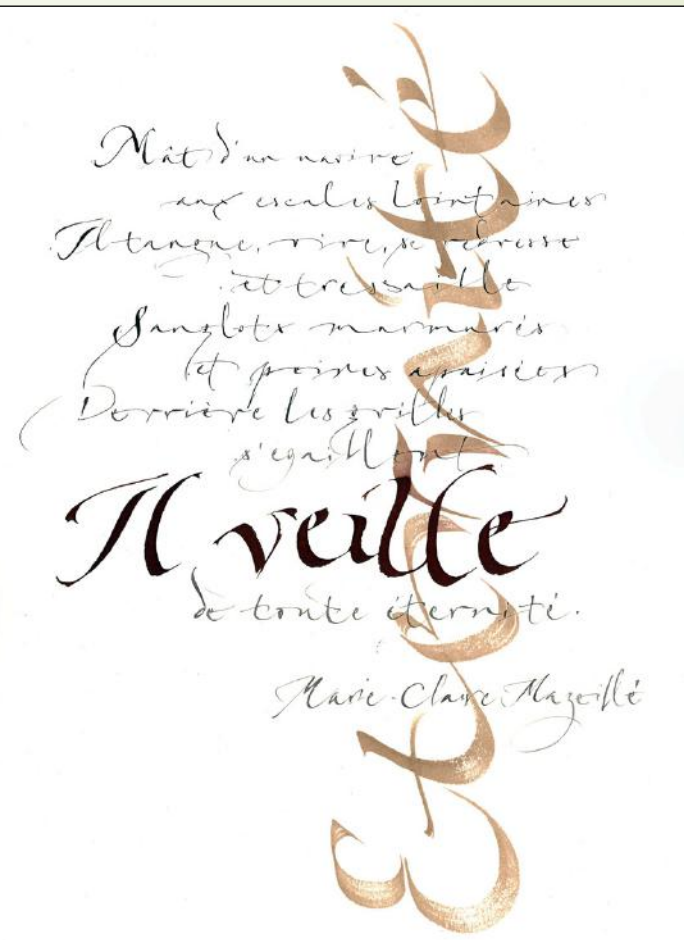 Mât d'un navire
aux escales lointaines
Il tangue, vire, se redresse
et tressaille
Sanglots murmurés
et peines apaisées
Derrière les grilles
s'egaillent
Il veille
de toute éternité.
Marie-Claire Mazeillé
Eternité